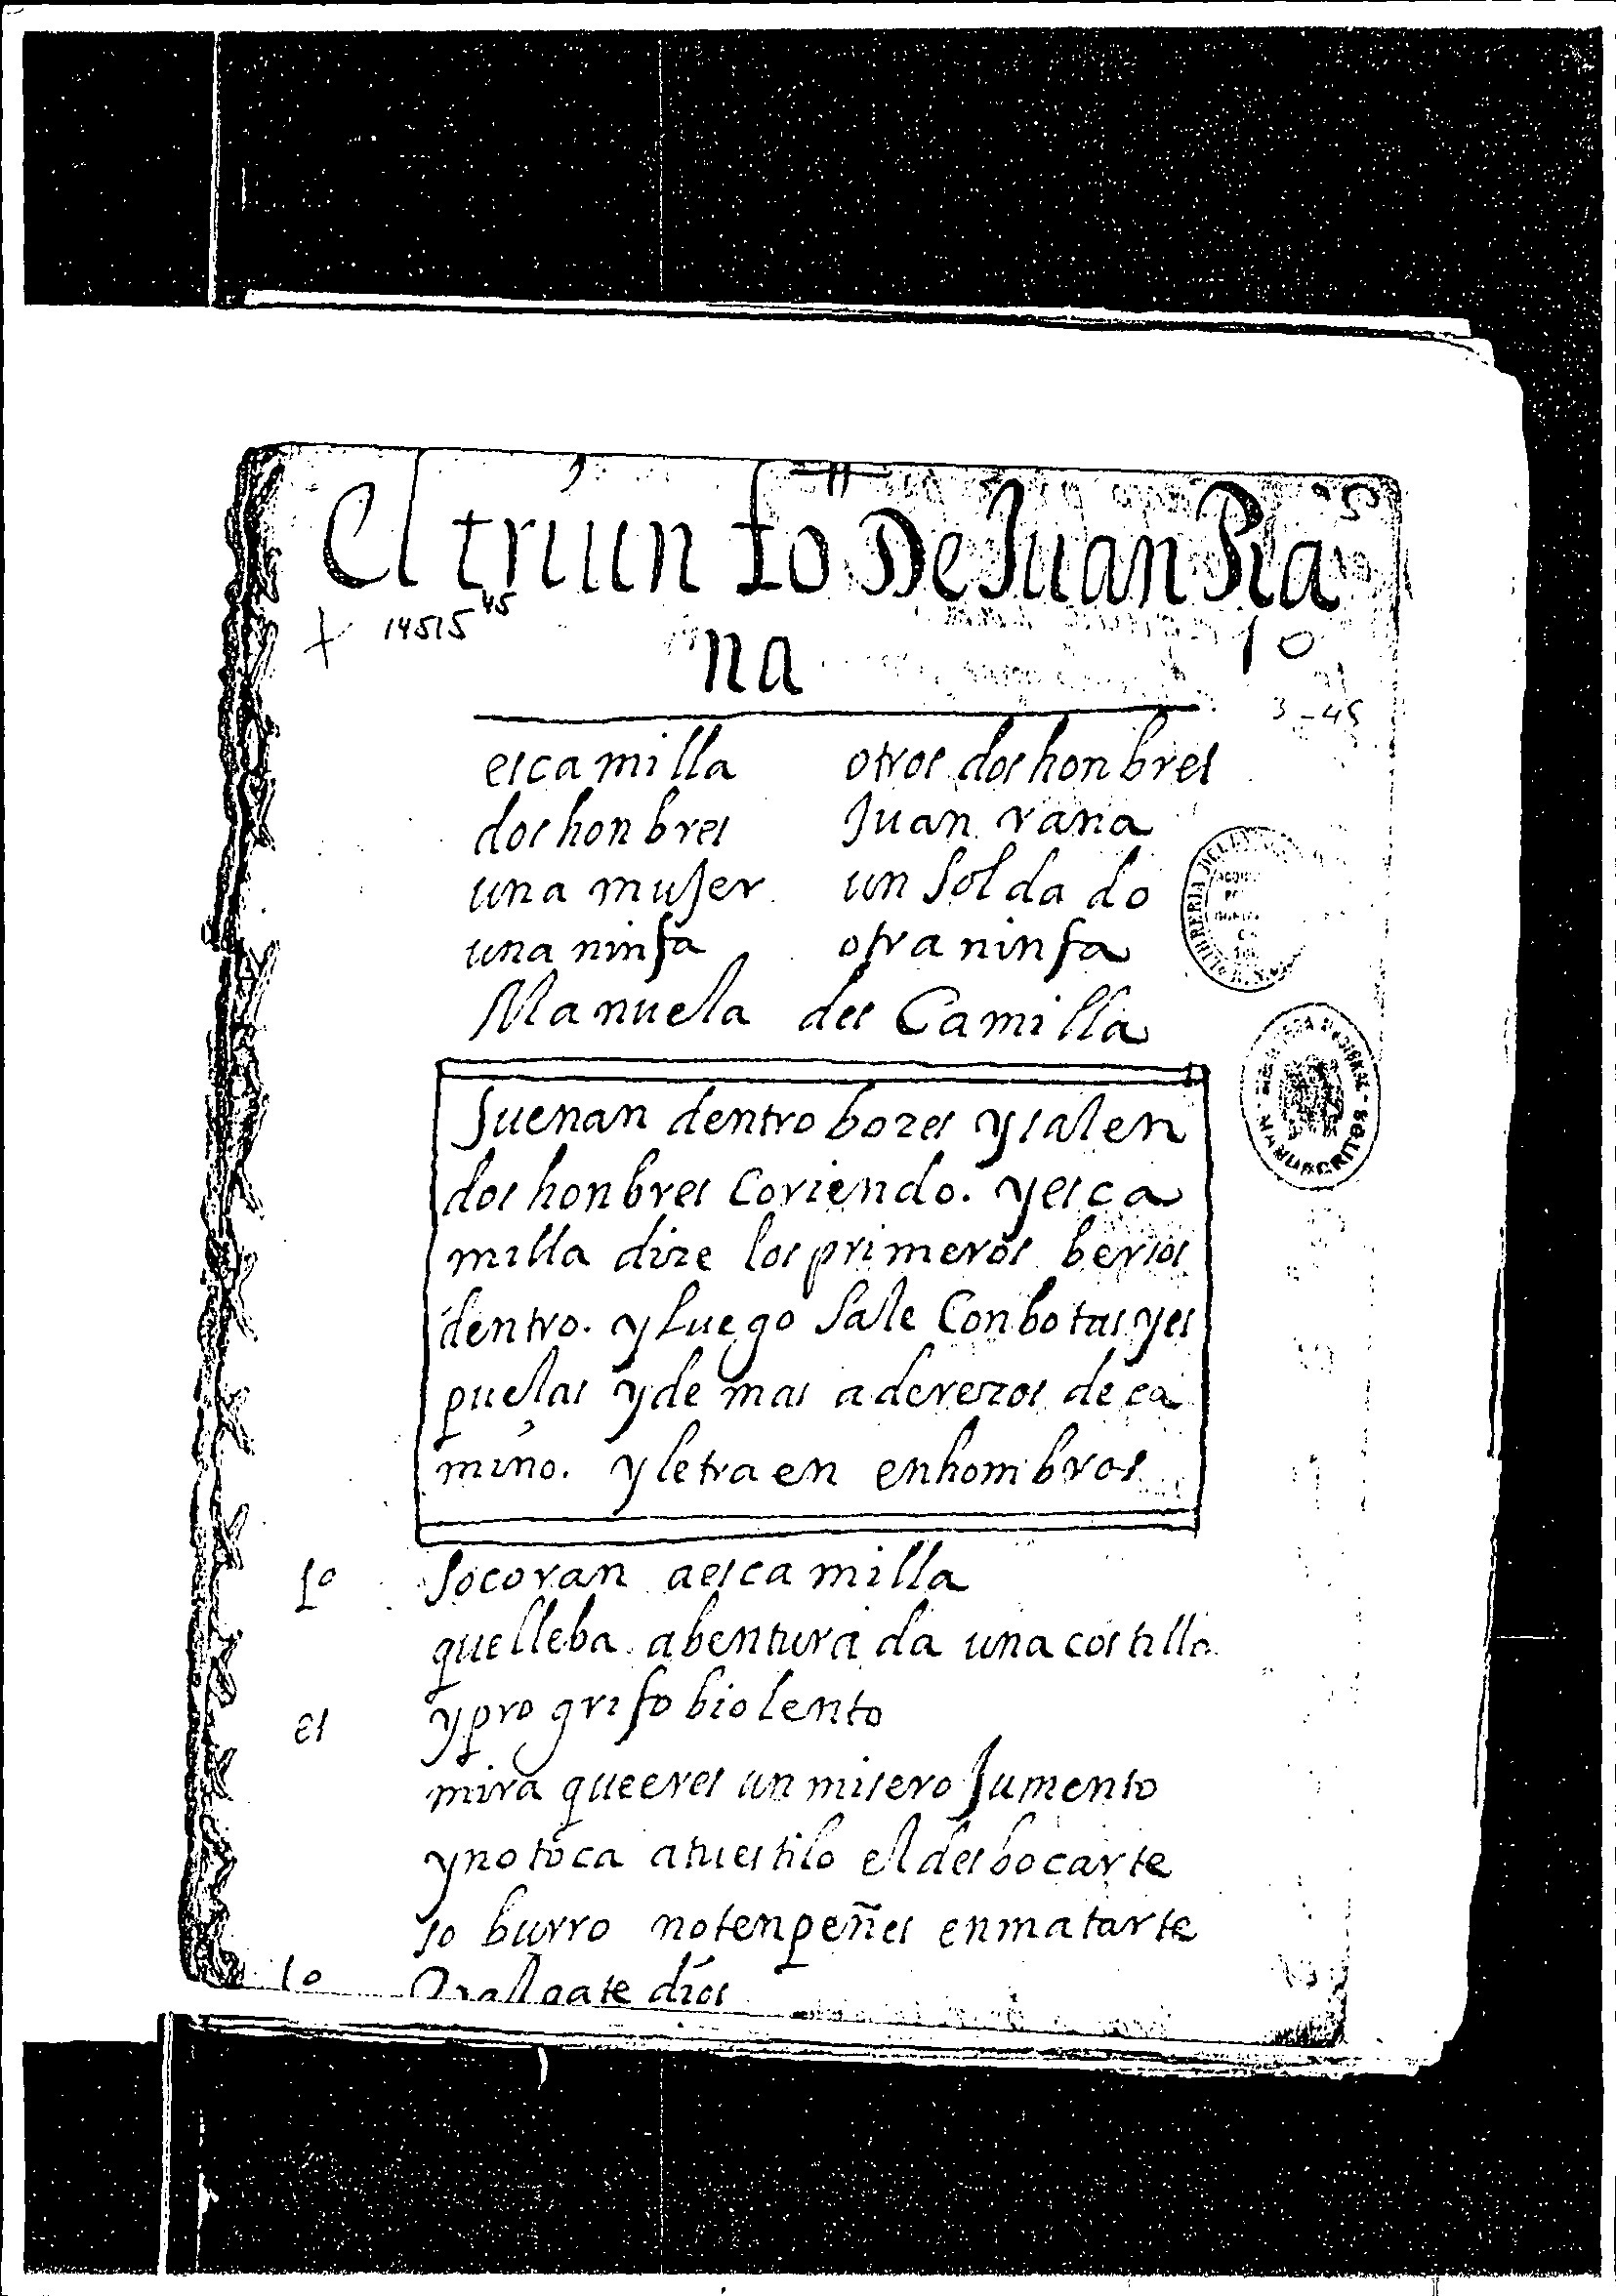 El triunfo De Juan Ra
na
14515 45
10
3-45
escamilla otros dos honbres
dos honbres Juan rana
una mujer un soldado
una ninfa otra ninfa
Manuela des Camilla
BIBLIOTECA NACIONAL MANUSCRITOS
Suenan dentro bozes y salen
dos honbres Coriendo. y esca
milla dize los primeros bersos
dentro. y luego sale Con botas y es
puelas y de mas aderezos de ca
mino. y letra en en hombros
1o Socoran a escamilla
que lleba abenturada una costilla
es ypro grifo biolento
mira que eres un misero Jumento
y no toca a tu estilo el desbocarte
so burro no tenpeñes en matarte
1o Balgate dios